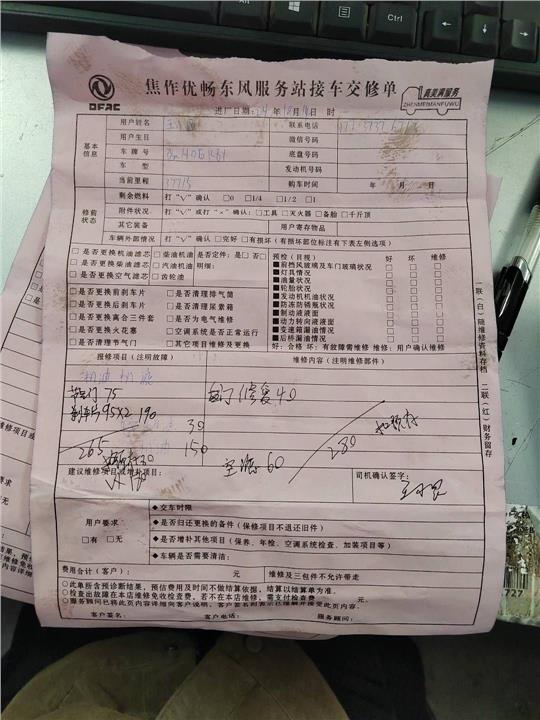 焦作优畅东风服务站接车交修单
DFAC
真美满服务
ZHENMEIMANFUWU
进厂日期: 年 月 日 时
基本信息
用户姓名 联系电话
用户生日 微信号码
车牌号 底盘号码
车型 发动机号码
当前里程 27715 购车时间 年 月 日
修前状态
剩余燃料 打“√”确认 □0 □1/4 □1/2 □1
附件状况 打“√”或打“×”确认: □工具 □灭火器 □备胎 □千斤顶
其它装备 用户寄存物品
车辆外部情况 打“√”确认 □完好 □有损坏(有损坏部位标注有下表左侧选项)
□是否更换机油滤芯 □柴油机油 是否定件: 是□ 否□
□是否更换柴油滤芯 □汽油机油 明细:
□是否更换空气滤芯 □齿轮油
□是否更换前刹车片 □是否清理排气筒
□是否更换后刹车片 □是否清理尿素箱
□是否更换离合三件套 □是否为电气维修
□是否更换火花塞 □空调系统是否正常运行
□是否清理节气门 □其它项目维修及更换
预检(目视) 好 坏 维修
■前档风玻璃及车门玻璃状况 □ □ □
■灯具情况 □ □ □
■油量状况 □ □ □
■轮胎状况 □ □ □
■发动机机油状况 □ □ □
■防冻防锈瓶状况 □ □ □
■制动液液面 □ □ □
■动力转向液液面 □ □ □
■变速箱漏油情况 □ □ □
■后桥漏油情况 □ □ □
好: 合格 坏: 有故障需维修 维修: 用户确认维修
一联(白)随维修资料存档 二联(红)财务留存
报修项目(注明故障) 维修内容(注明维修部件)
75 修复40
95×2 190
30
265 150
空滤60
280
建议维修项目或增补项目:
司机确认签字:
用户要求
□有 □无
◆交车时限
◆是否归还更换的备件(保修项目不退还旧件)
◆是否增补其他项目(保养、年检、空调系统检查、加装项目等)
◆车辆是否需要清洁:
费用合计(客户): 元 维修及三包件不允许带走
○此单所含预诊断结果,预估费用及时间不做结算依据,结算以结算单为准.
○检查出故障在本店维修免收检查费,若不在本店维修,需支付检查费 元.
○服务顾问已将此页内容详细向客户说明,客户签名则表示已理解并接受此页内容.
客户签名: 客户电话: 服务顾问:
Ctrl
727